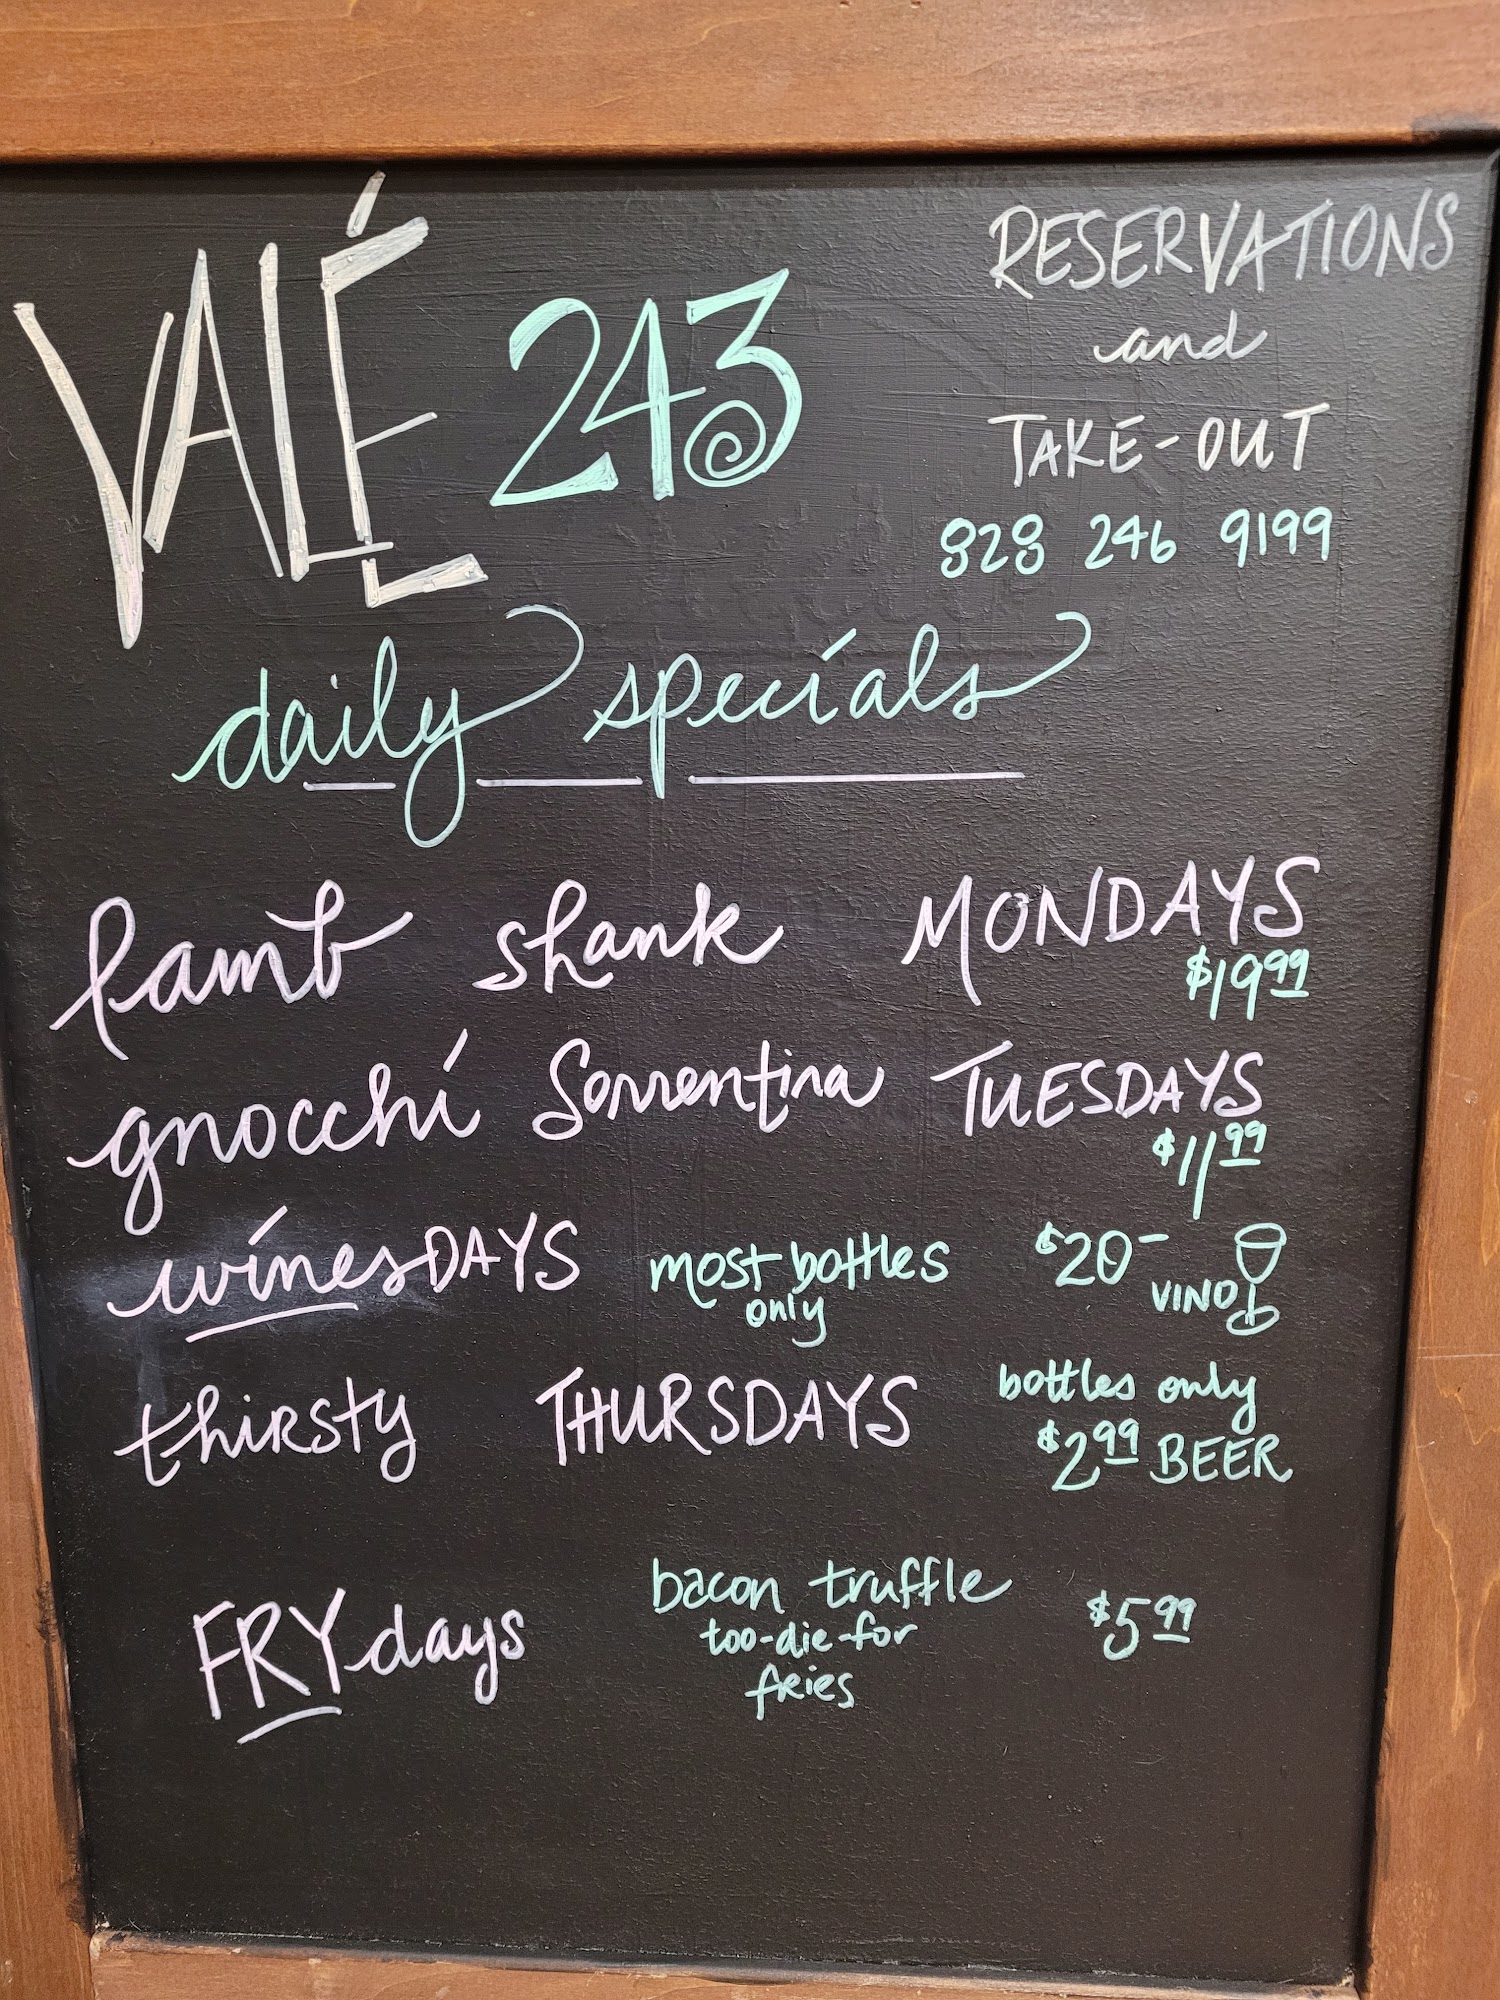 VALÉ 243
RESERVATIONS
and
TAKE-OUT
828 246 9199
daily specials
lamb shank MONDAYS
$19.99
gnocchi Sorrentina TUESDAYS
$11.99
winesDAYS most bottles only $20- VINO
thirsty THURSDAYS bottles only
$2.99 BEER
FRYdays bacon truffle $5.99
too-die-for
fries